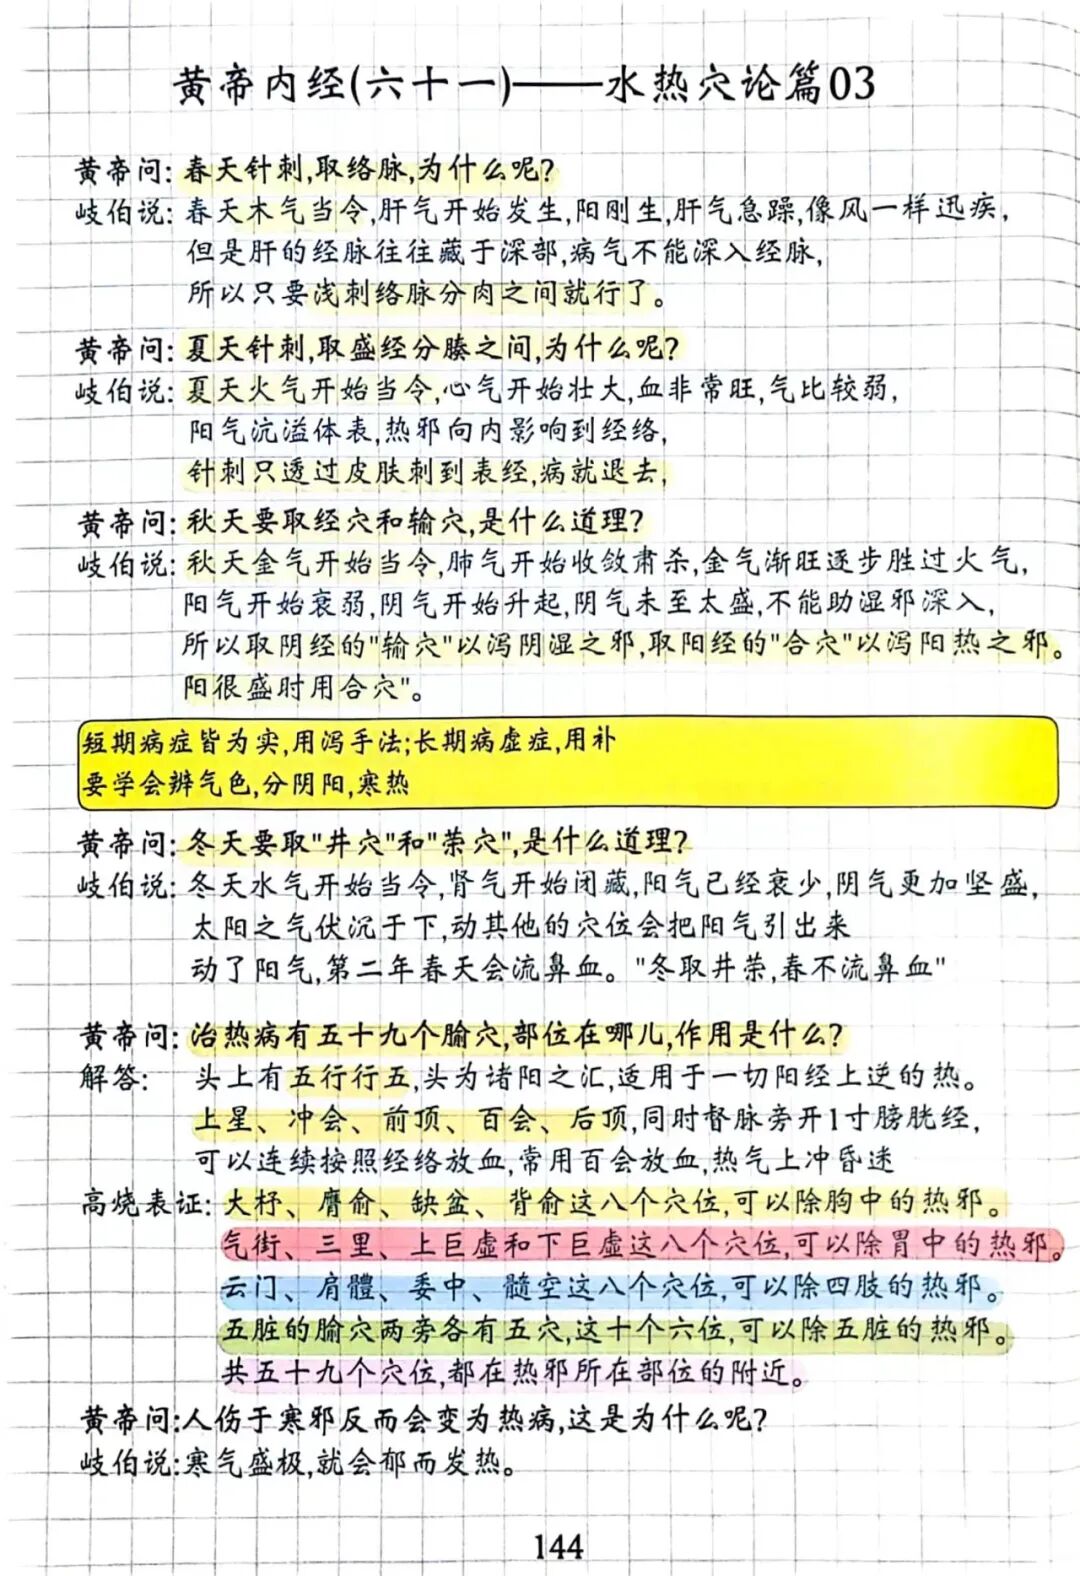 黄帝内经(六十一)——水热穴论篇03
黄帝问:春天针刺,取络脉,为什么呢?
岐伯说:春天木气当令,肝气开始发生,阳刚生,肝气急躁,像风一样迅疾,
但是肝的经脉往往藏于深部,病气不能深入经脉,
所以只要浅刺络脉分肉之间就行了。
黄帝问:夏天针刺,取盛经分腠之间,为什么呢?
岐伯说:夏天火气开始当令,心气开始壮大,血非常旺,气比较弱,
阳气沆溢体表,热邪向内影响到经络,
针刺只透过皮肤刺到表经,病就退去,
黄帝问:秋天要取经穴和输穴,是什么道理?
岐伯说:秋天金气开始当令,肺气开始收敛肃杀,金气渐旺逐步胜过火气,
阳气开始衰弱,阴气开始升起,阴气未至太盛,不能助湿邪深入,
所以取阴经的"输穴"以泻阴湿之邪,取阳经的"合穴"以泻阳热之邪。
阳很盛时用合穴"。
短期病症皆为实,用泻手法;长期病虚症,用补
要学会辨气色,分阴阳,寒热
黄帝问:冬天要取"井穴"和"荣穴",是什么道理?
岐伯说:冬天水气开始当令,肾气开始闭藏,阳气已经衰少,阴气更加坚盛,
太阳之气伏沉于下,动其他的穴位会把阳气引出来
动了阳气,第二年春天会流鼻血。"冬取井荣,春不流鼻血"
黄帝问:治热病有五十九个腧穴,部位在哪儿,作用是什么?
解答: 头上有五行行五,头为诸阳之汇,适用于一切阳经上逆的热。
上星、冲会、前顶、百会、后顶,同时督脉旁开1寸膀胱经,
可以连续按照经络放血,常用百会放血,热气上冲昏迷
高烧表证:大杼、膺俞、缺盆、背俞这八个穴位,可以除胸中的热邪。
气街、三里、上巨虚和下巨虚这八个穴位,可以除胃中的热邪。
云门、肩髃、委中、髓空这八个穴位,可以除四肢的热邪。
五脏的腧穴两旁各有五穴,这十个六位,可以除五脏的热邪。
共五十九个穴位,都在热邪所在部位的附近。
黄帝问:人伤于寒邪反而会变为热病,这是为什么呢?
岐伯说:寒气盛极,就会郁而发热。
144